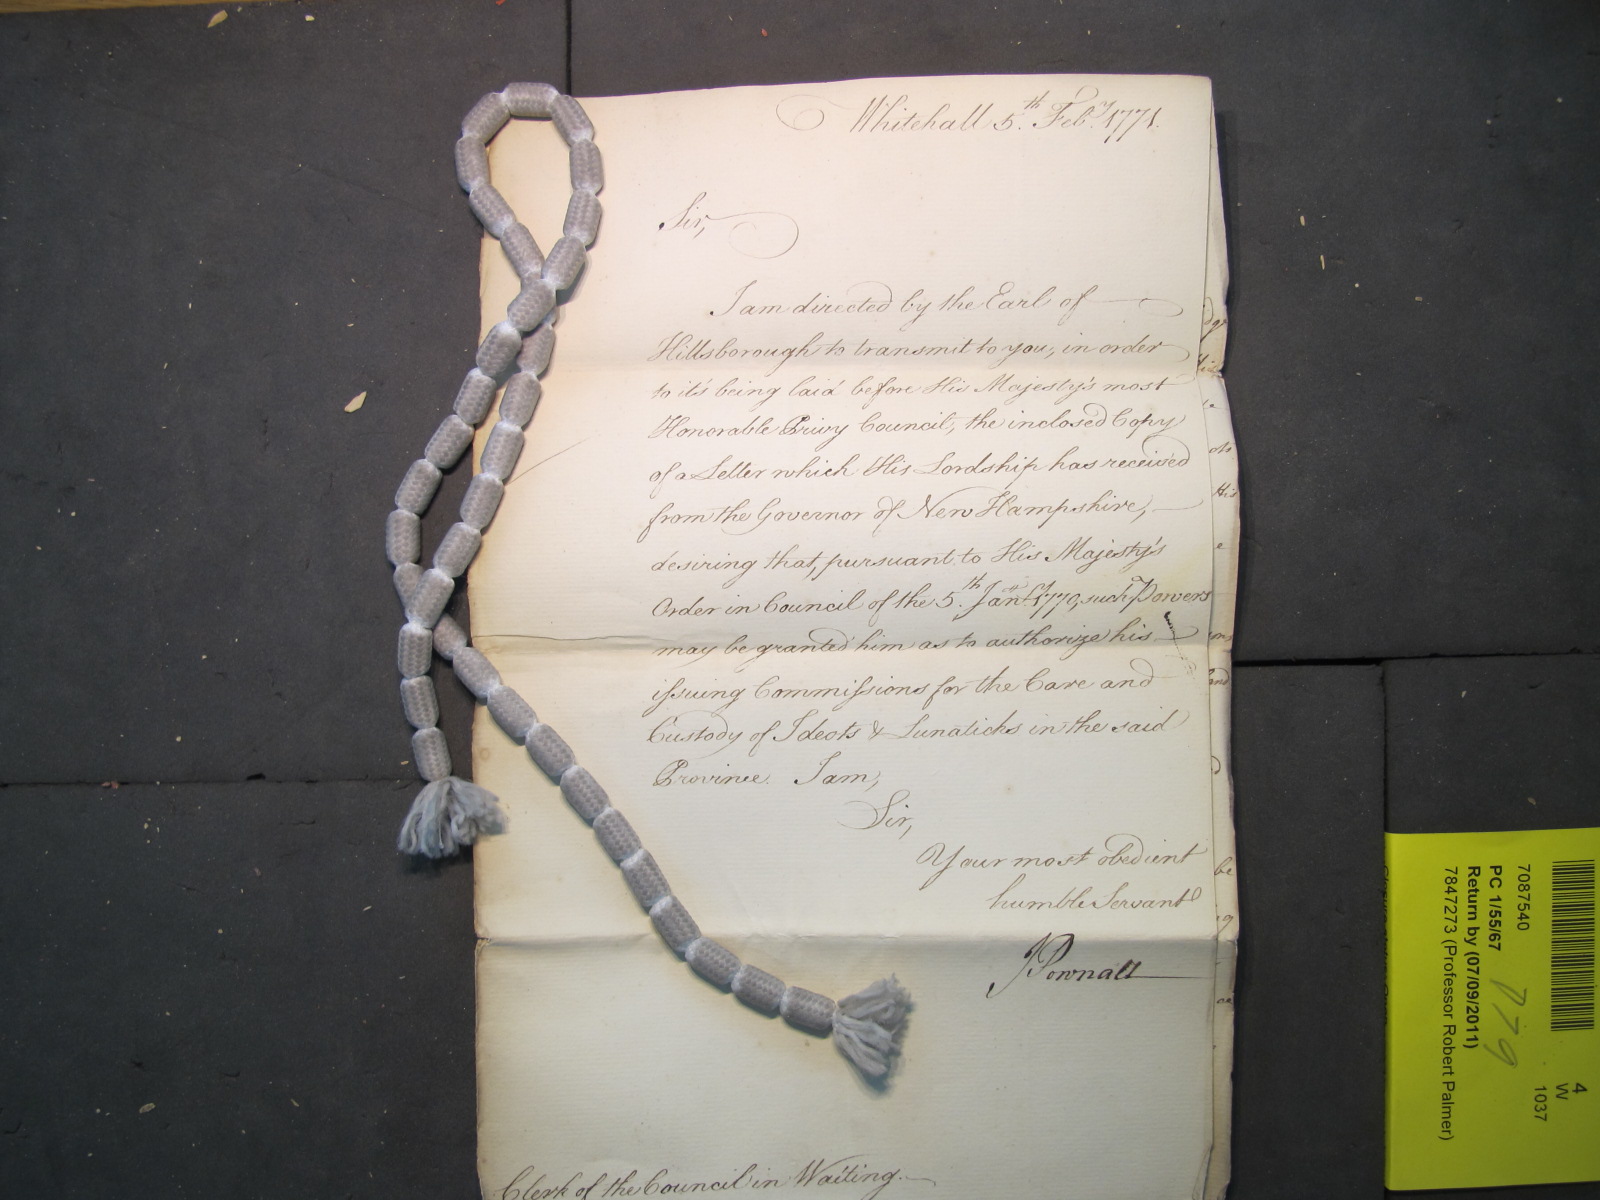 Whitehall 5.th Feb.ry 1771.
Sir,
I am directed by the Earl of
Hillsborough to transmit to you, in order
to it's being laid before His Majesty's most
Honorable Privy Council, the inclosed Copy
of a Letter which His Lordship has received
from the Governor of New Hampshire,
desiring that, pursuant to His Majesty's
Order in Council of the 5.th Jan.ry 1770, such Powers
may be granted him as to authorize his
issuing Commissions for the Care and
Custody of Ideots & Lunaticks in the said
Province. I am,
Sir,
Your most obedient
humble Servant
J Pownall
Clerk of the Council in Waiting.
7087540
PC 1/55/67
Return by (07/09/2011)
7847273 (Professor Robert Palmer)
4
W
1037